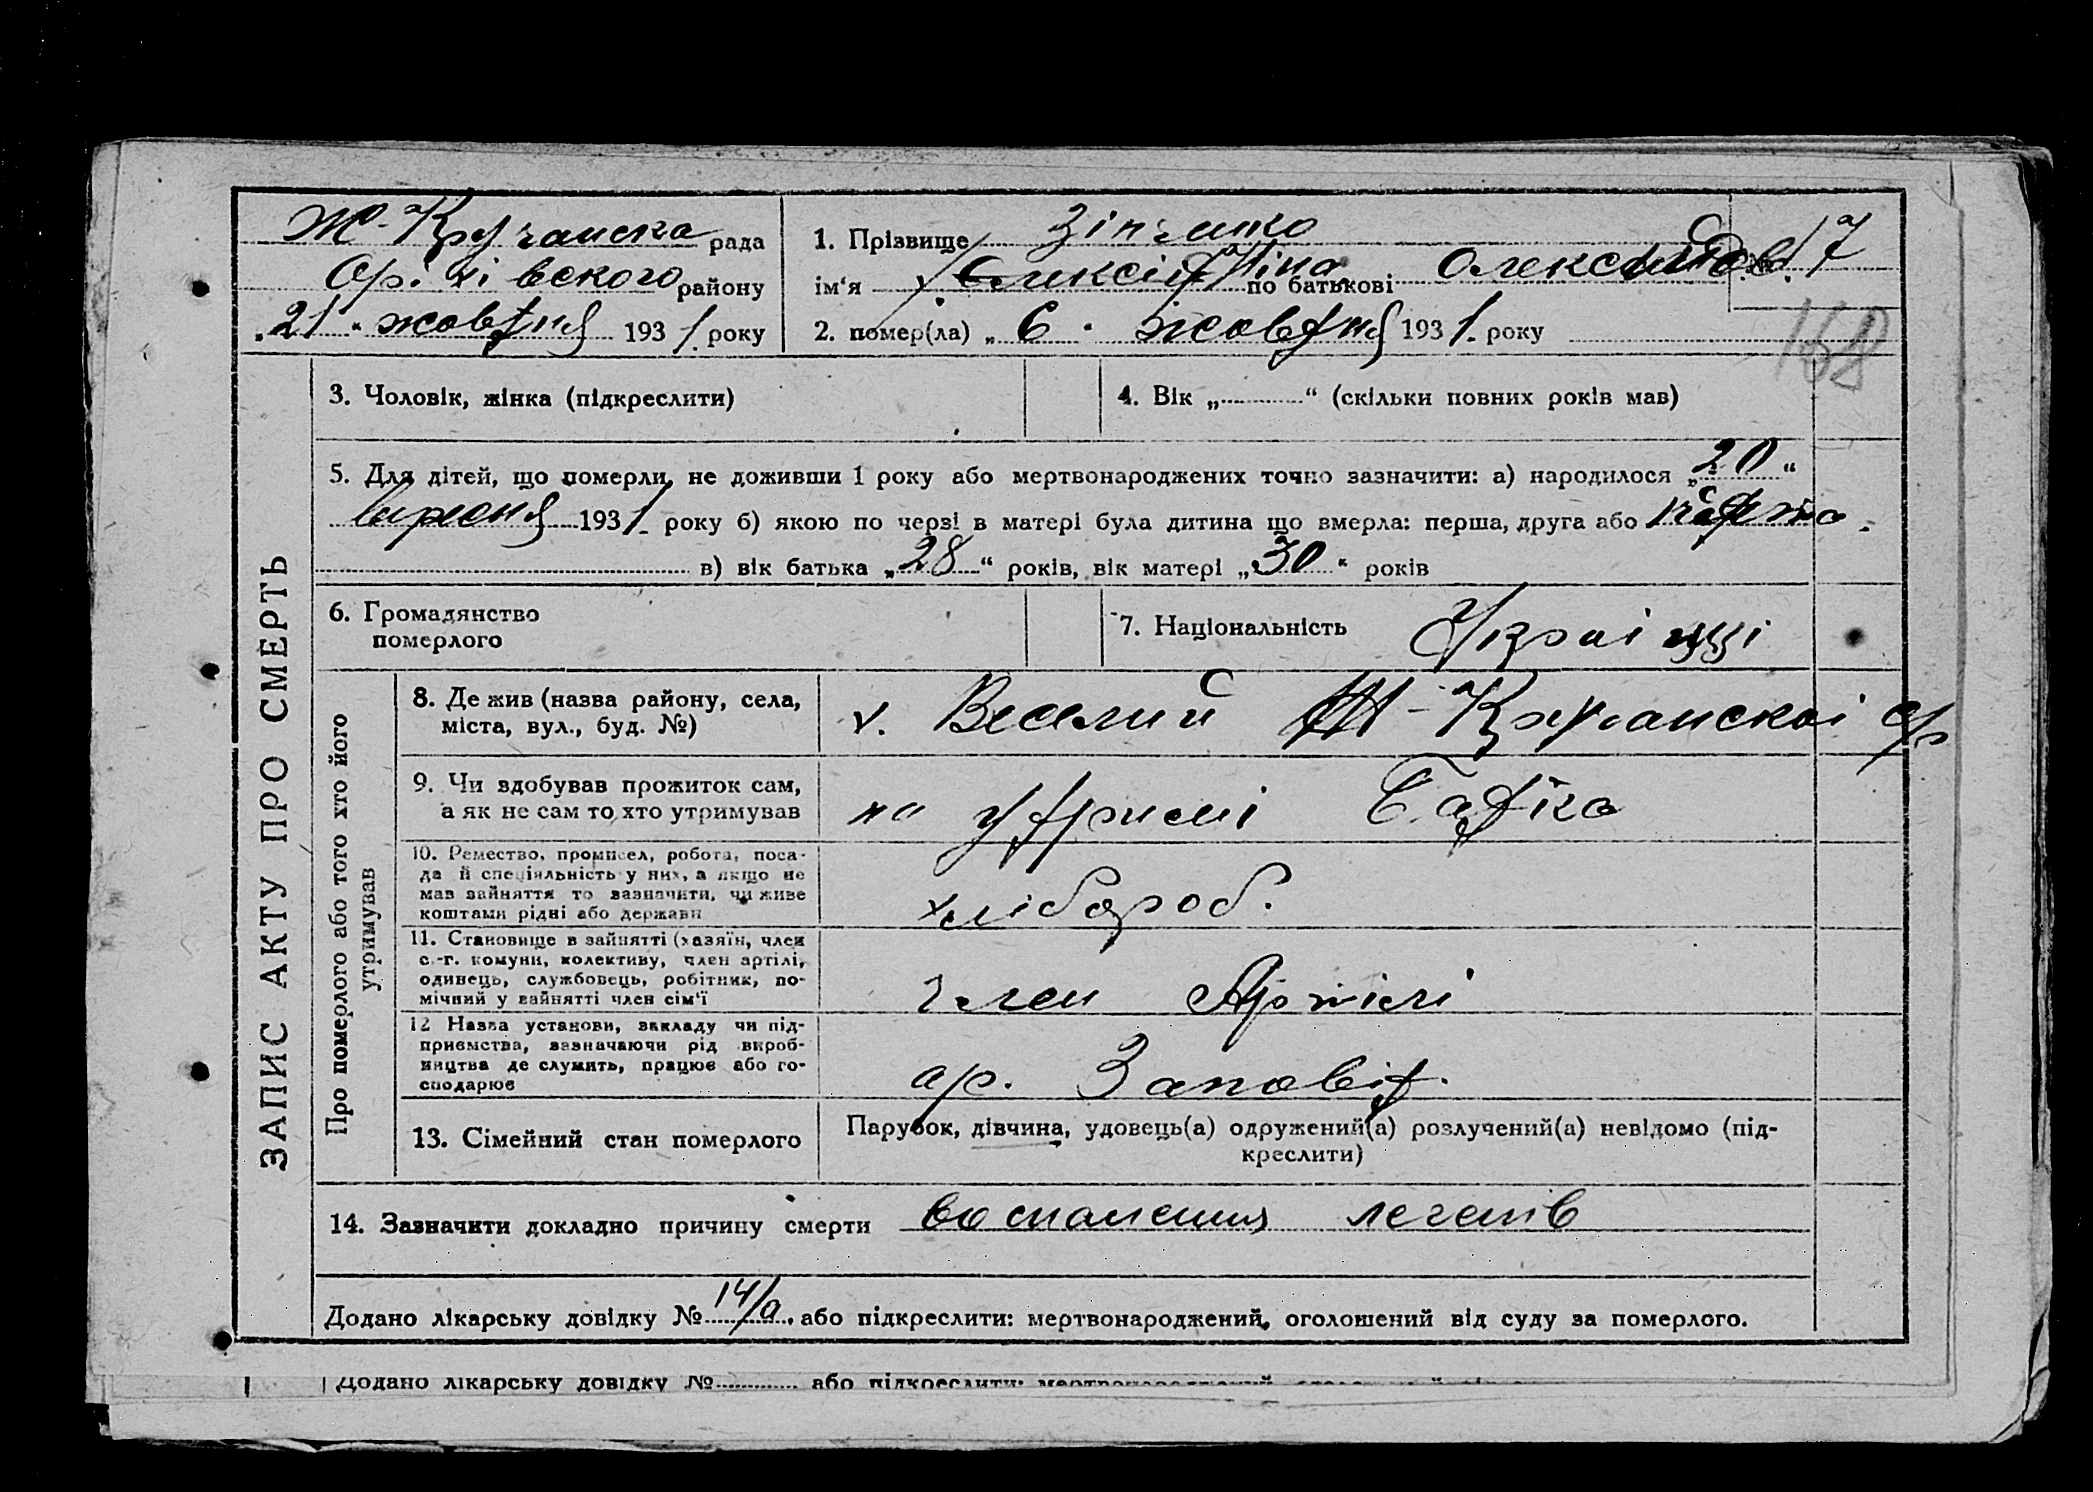 Ж-Кручанска рада
Оріхівского району
„21“ жовтня 1931. року
1. Прізвище Зінченко
ім‘я Олексій Ніна по батькові Олександров. 17
2. помер(ла) „6“ жовтня 1931. року
168
ЗАПИС АКТУ ПРО СМЕРТЬ
3. Чоловік, жінка (підкреслити)
4. Вік „ “ (скільки повних років мав)
5. Для дітей, що померли, не доживши 1 року або мертвонароджених точно зазначити: а) народилося „20“
вересня 1931. року б) якою по черзі в матері була дитина що вмерла: перша, друга або
в) вік батька „28“ років, вік матері „30“ років
6. Громадянство
померлого
7. Національність Украінці
Про померлого або того хто його
утримував
8. Де жив (назва району, села,
міста, вул., буд. №)
х. Веселий Ж-Кручанскоі с/р
9. Чи здобував прожиток сам,
а як не сам то хто утримував
на утримі Батка
10. Ремество, промисел, робота, поса-
да й спеціяльність у них, а якщо не
мав зайняття то зазначити, чи живе
коштами рідні або держави
хлібороб.
11. Становище в зайнятті (хазяїн, член
с.-г. комуни, колективу, член артілі,
одинець, службовець, робітник, по-
мічний у зайнятті член сім‘ї
член Артілі
12 Назва установи, закладу чи під-
приємства, зазначаючи рід вироб-
ництва де служить, працює або го-
сподарює
ар. Заповіт.
13. Сімейний стан померлого
Парубок, дівчина, удовець(а) одружений(а) розлучений(а) невідомо (під-
креслити)
14. Зазначити докладно причину смерти воспаления легенів
Додано лікарську довідку № 14/а. або підкреслити: мертвонароджений, оголошений від суду за померлого.
Додано лікарську довідку № або підкреслити: